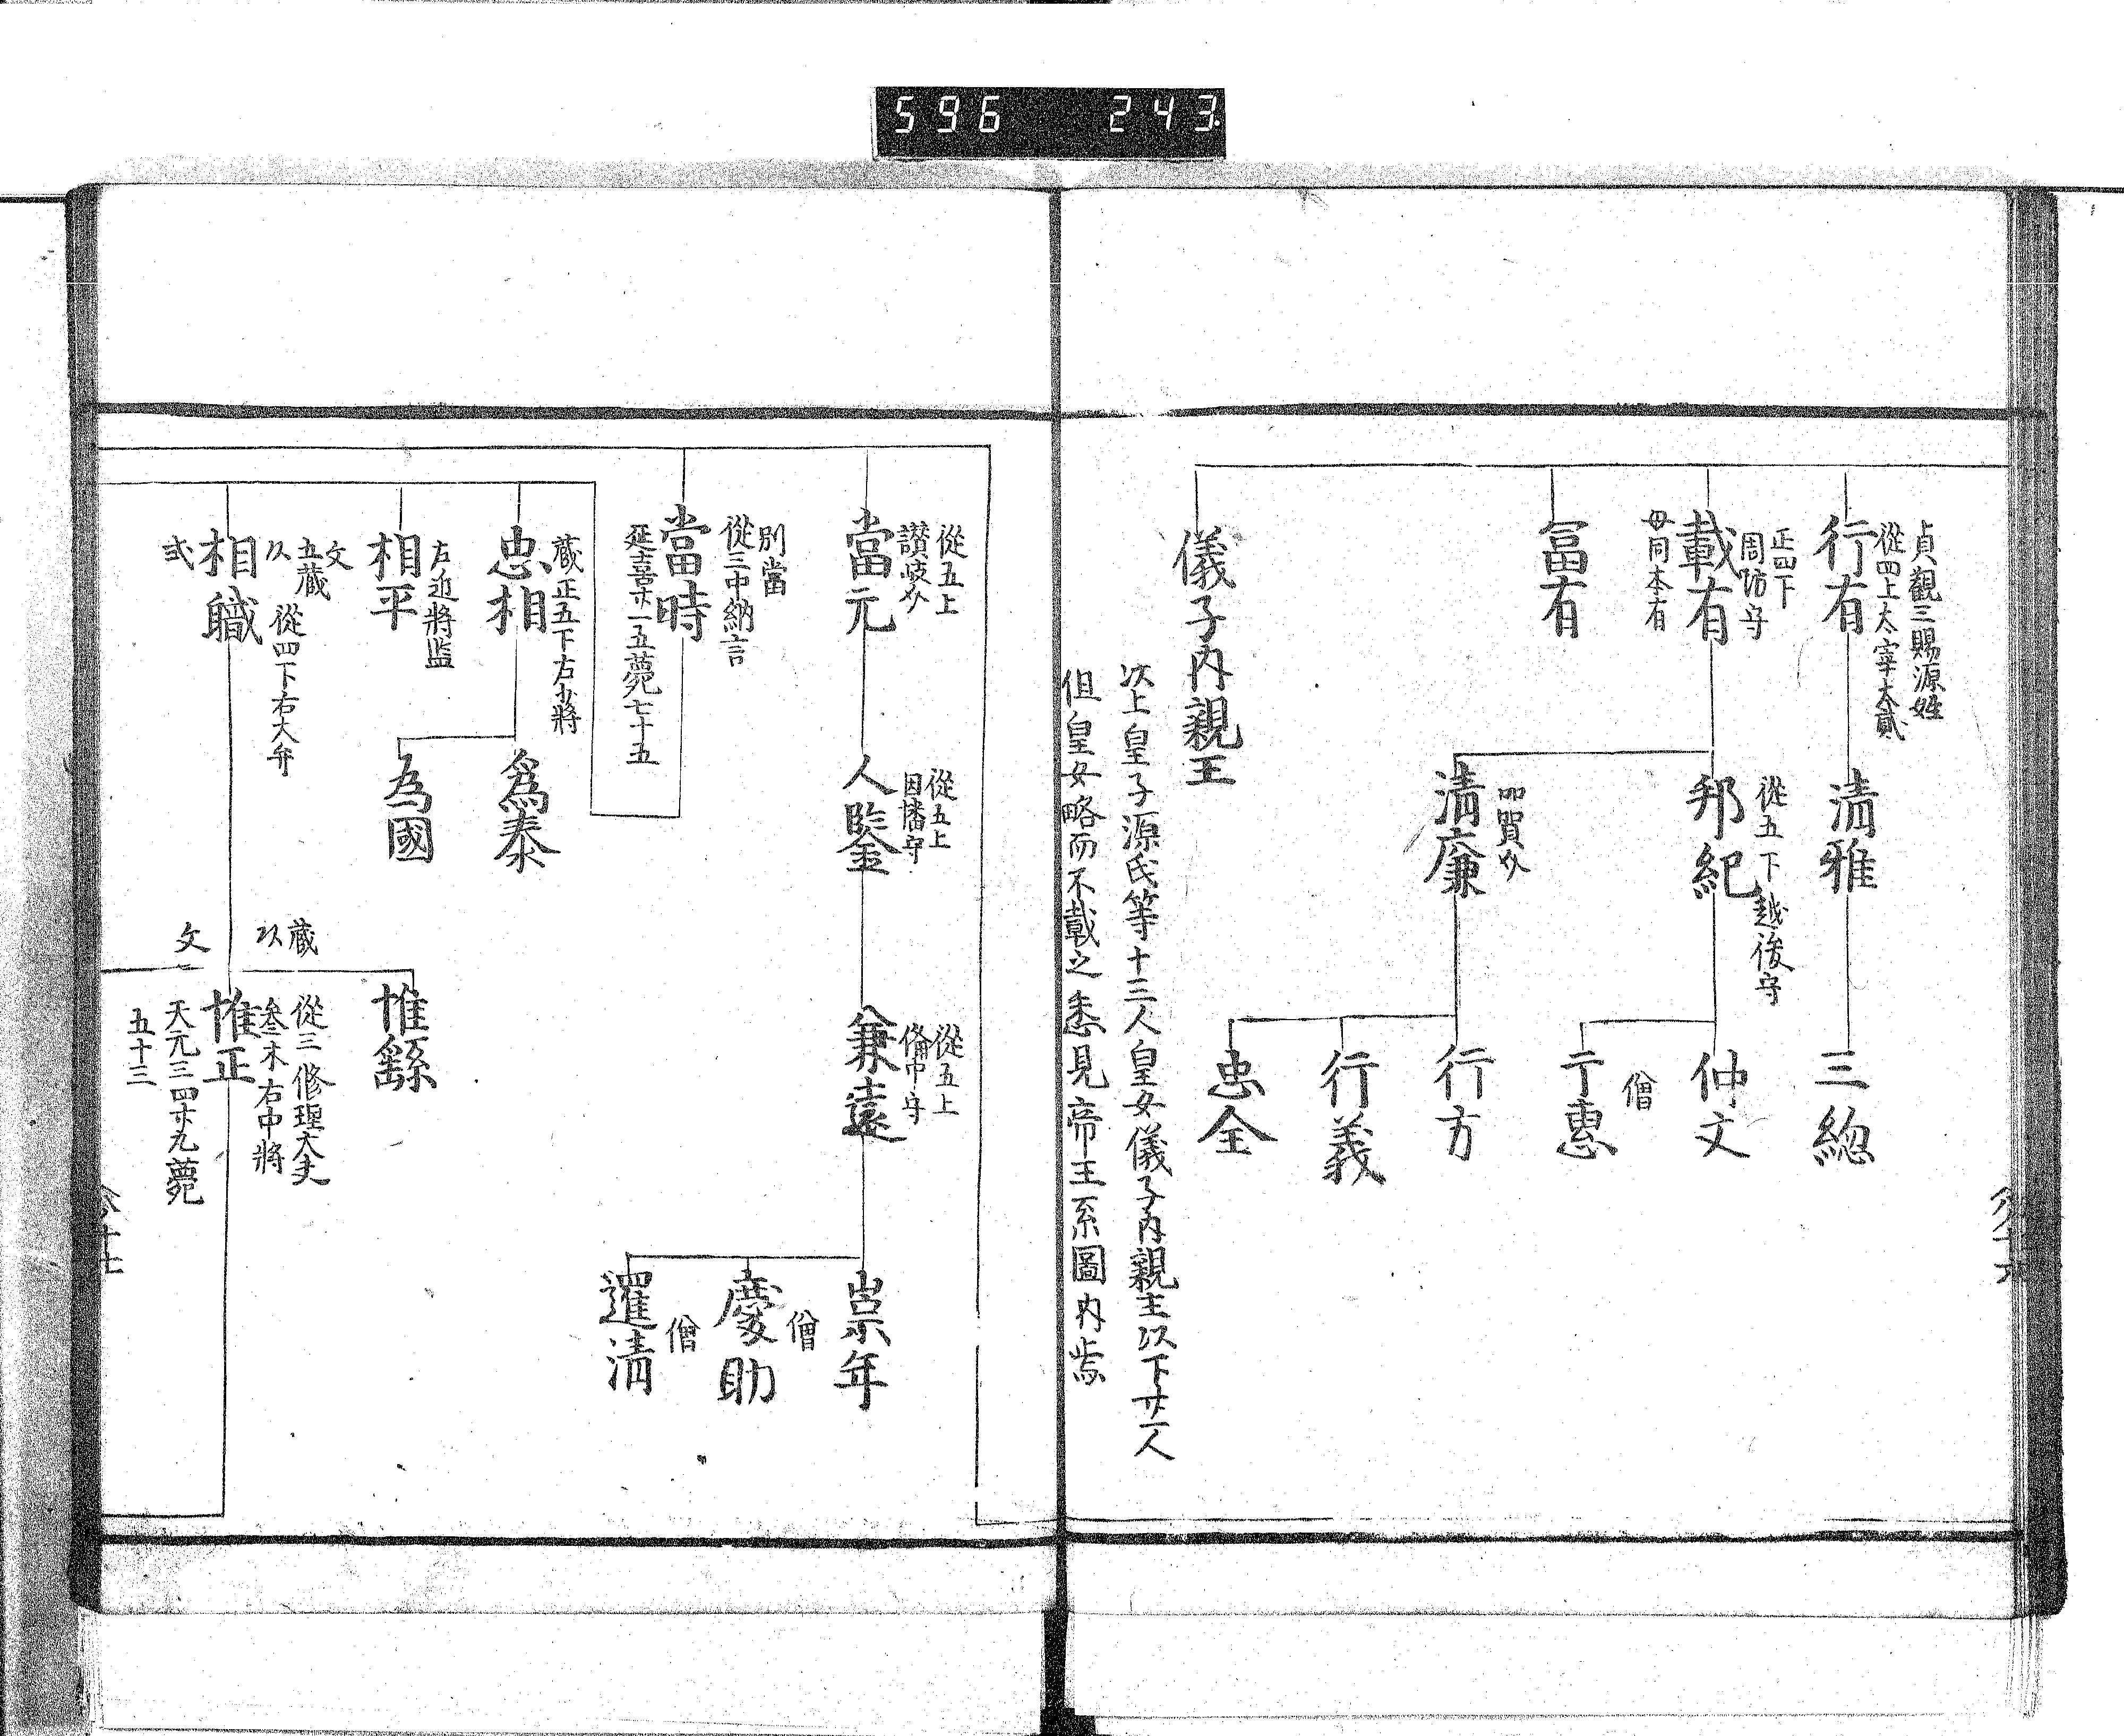 596 243
貞觀三賜源姓
從四上太宰大貳
行有
清雅
三総
正四下
周防守
載有
母同本有
從五下越後守
邦紀
仲文
僧
亍惠
加賀介
清廉
行方
行義
忠全
冨有
儀子内親王
以上皇子源氏等十三人皇女儀子内親王以下廿一人
但皇女略而不載之悉見帝王系圖内㷔
從五上
讃岐介
當元
從五上
因幡守
人鑒
從五上
備中守
兼遠
崇年
僧
慶助
僧
暹清
別當
從三中納言
當時
延喜廿一五薨七十五
蔵正五下右少將
忠相
爲泰
為國
右近將監
相平
文
五蔵
從四下右大弁
以
相職
弐
惟繇
蔵
以
從三修理大夫
叅木右中將
惟正
文
天元三四廿九薨
五十三